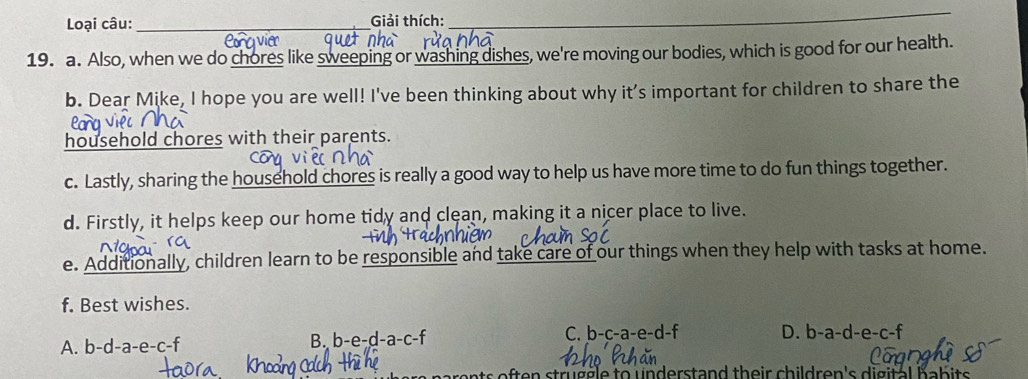 Loại câu: Giải thích:
côngviêc quet nhà rửa nhà
19. a. Also, when we do chores like sweeping or washing dishes, we're moving our bodies, which is good for our health.
b. Dear Mike, I hope you are well! I've been thinking about why it's important for children to share the
công việc nhà
household chores with their parents.
công việc nhà
c. Lastly, sharing the household chores is really a good way to help us have more time to do fun things together.
d. Firstly, it helps keep our home tidy and clean, making it a nicer place to live.
ngoài ra tinh trachnhiệm chăm soc
e. Additionally, children learn to be responsible and take care of our things when they help with tasks at home.
f. Best wishes.
A. b-d-a-e-c-f B. b-e-d-a-c-f C. b-c-a-e-d-f D. b-a-d-e-c-f
taora khoảng cách thế hệ khó khăn côngnghệ số
parents often struggle to understand their children's digital habits